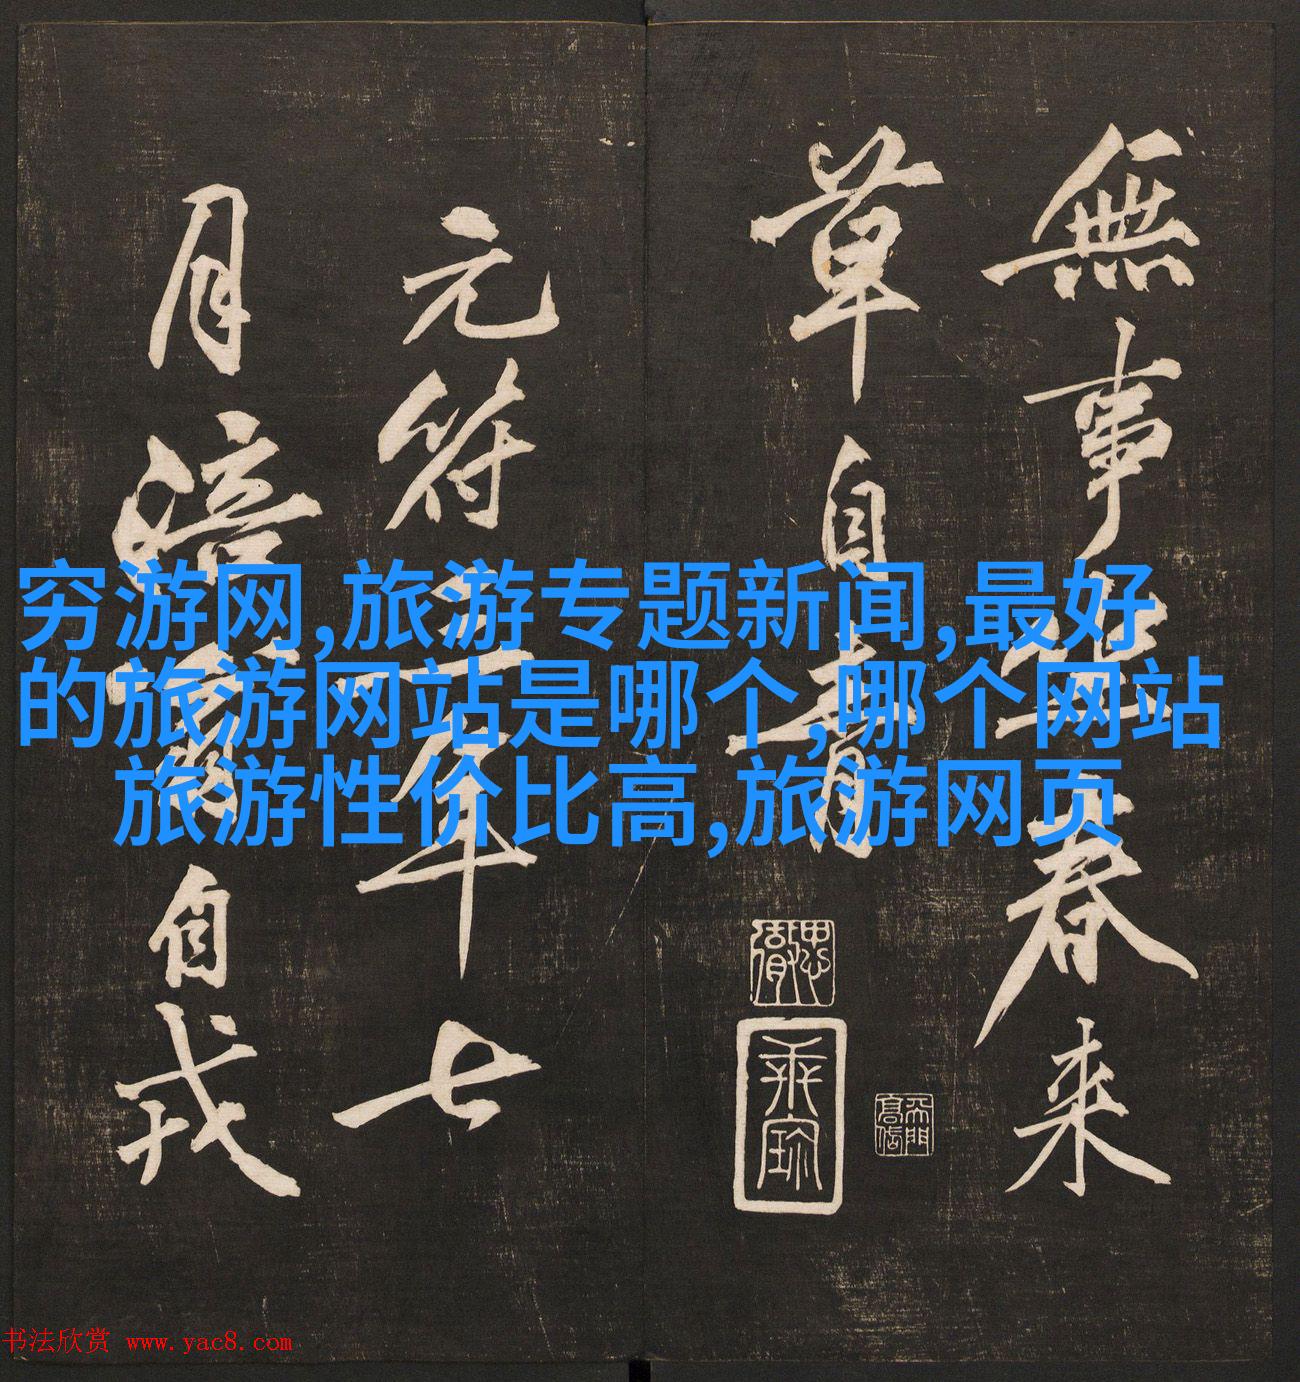 無事坐春来
草自青
元符三年七
月涪翁自戎
穷游网,旅游专题新闻,最好
的旅游网站是哪个,哪个网站
旅游性价比高,旅游网页
书法欣赏 www.yac8.com